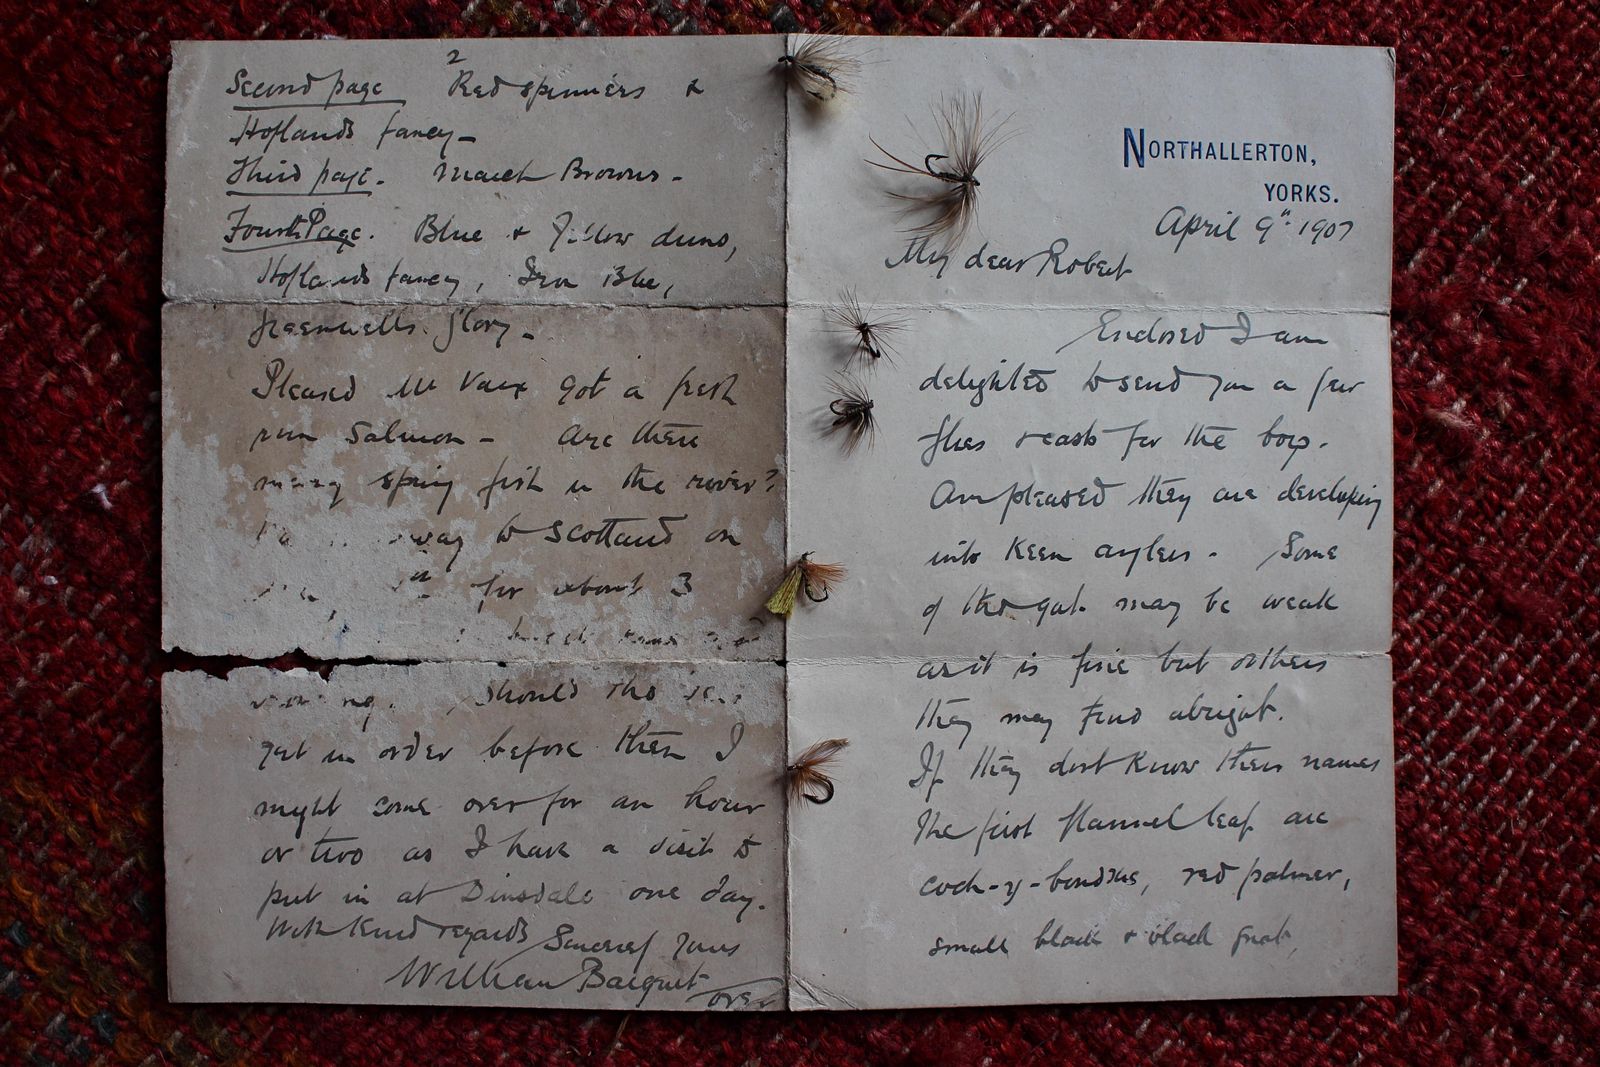 NORTHALLERTON,
YORKS.
April 9th 1907
My dear Robert
Enclosed I am
delighted to send you a few
flies & casts for the boys.
Am pleased they are developing
into keen anglers - Some
of the gut may be weak
as it is fine but others
they may find alright.
If they dont know their names
the first flannel leaf are
coch-y-bondhus, red palmer,
small black & black gnat,
2
Second page Red spinners &
Hoflands fancy -
Third page - March Browns -
Fourth Page. Blue & Yellow duns,
Hoflands fancy, Iron Blue,
Greenwells Glory -
Pleased Mr Vaux got a fresh
run Salmon - Are there
many spring fish in the river?
way to Scotland on
for about 3
Should the
get in order before then I
might come over for an hour
or two as I have a visit to
put in at Dinsdale one day.
With kind regards Sincerely yours
William
over